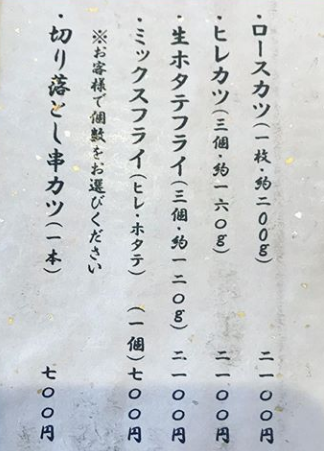 ・ロースカツ(一枚・約二00g) 二一00円
・ヒレカツ(三個・約一六0g) 二一00円
・生ホタテフライ(三個・約一二0g) 二一00円
・ミックスフライ(ヒレ・ホタテ) (一個)七00円
※お客様で個数をお選びください
・切り落とし串カツ(一本) 七00円